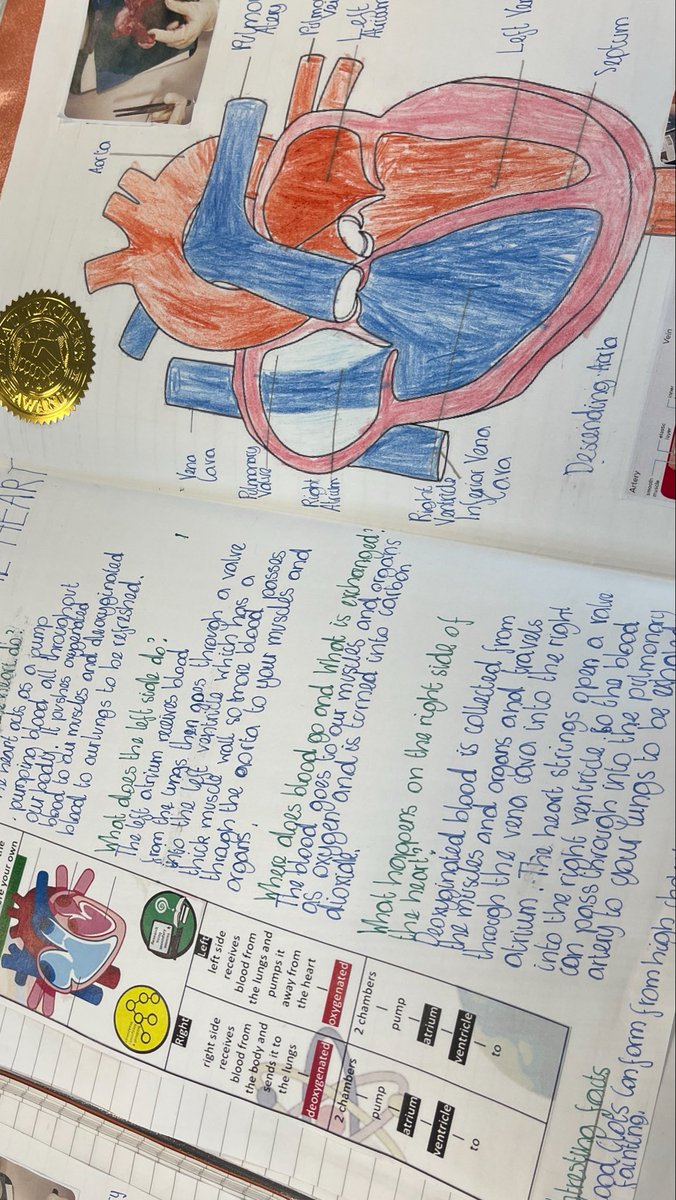 HEART
heart do?
heart acts as a pump
pumping blood all throughout
our body. It pushes oxygenated
blood to our muscles and deoxyginated
blood to our lungs to be refreshed.
What does the left side do?
The left atrium receives blood
from the lungs then goes through a valve
into the left ventricle which has a
thick muscle wall so more blood passes
through the aorta to your muscles and
organs.
Where does blood go and What is exchanged?
The blood goes to our muscles and organs
as oxygen and is torned into carbon
dioxide.
What happens on the right side of
the heart?
Deoxyginated blood is collected from
the muscles and organs and travels
through the vena cava into the right
atrium. The heart strings open a valve
into the right ventricle so the blood
can pass through into the pulmonary
artery to your lungs to be
facts
can form from high
fainting.
the
your own
Left
left side
receives
blood from
the lungs and
pumps it
away from
the heart
oxygenated
2 chambers
pump
atrium
ventricle
to
Right
right side
receives
blood from
the body and
sends it to
the lungs
deoxygenated
2 chambers
pump
atrium
ventricle
to
Aorta
Artery
Left
Atrium
Left
Septum
Vena
Cava
Pulmonary
Valve
Right
Atrium
Right
Ventricle
Inferior Vena
Cava
Descending Aorta
Artery
Vein
AWARD